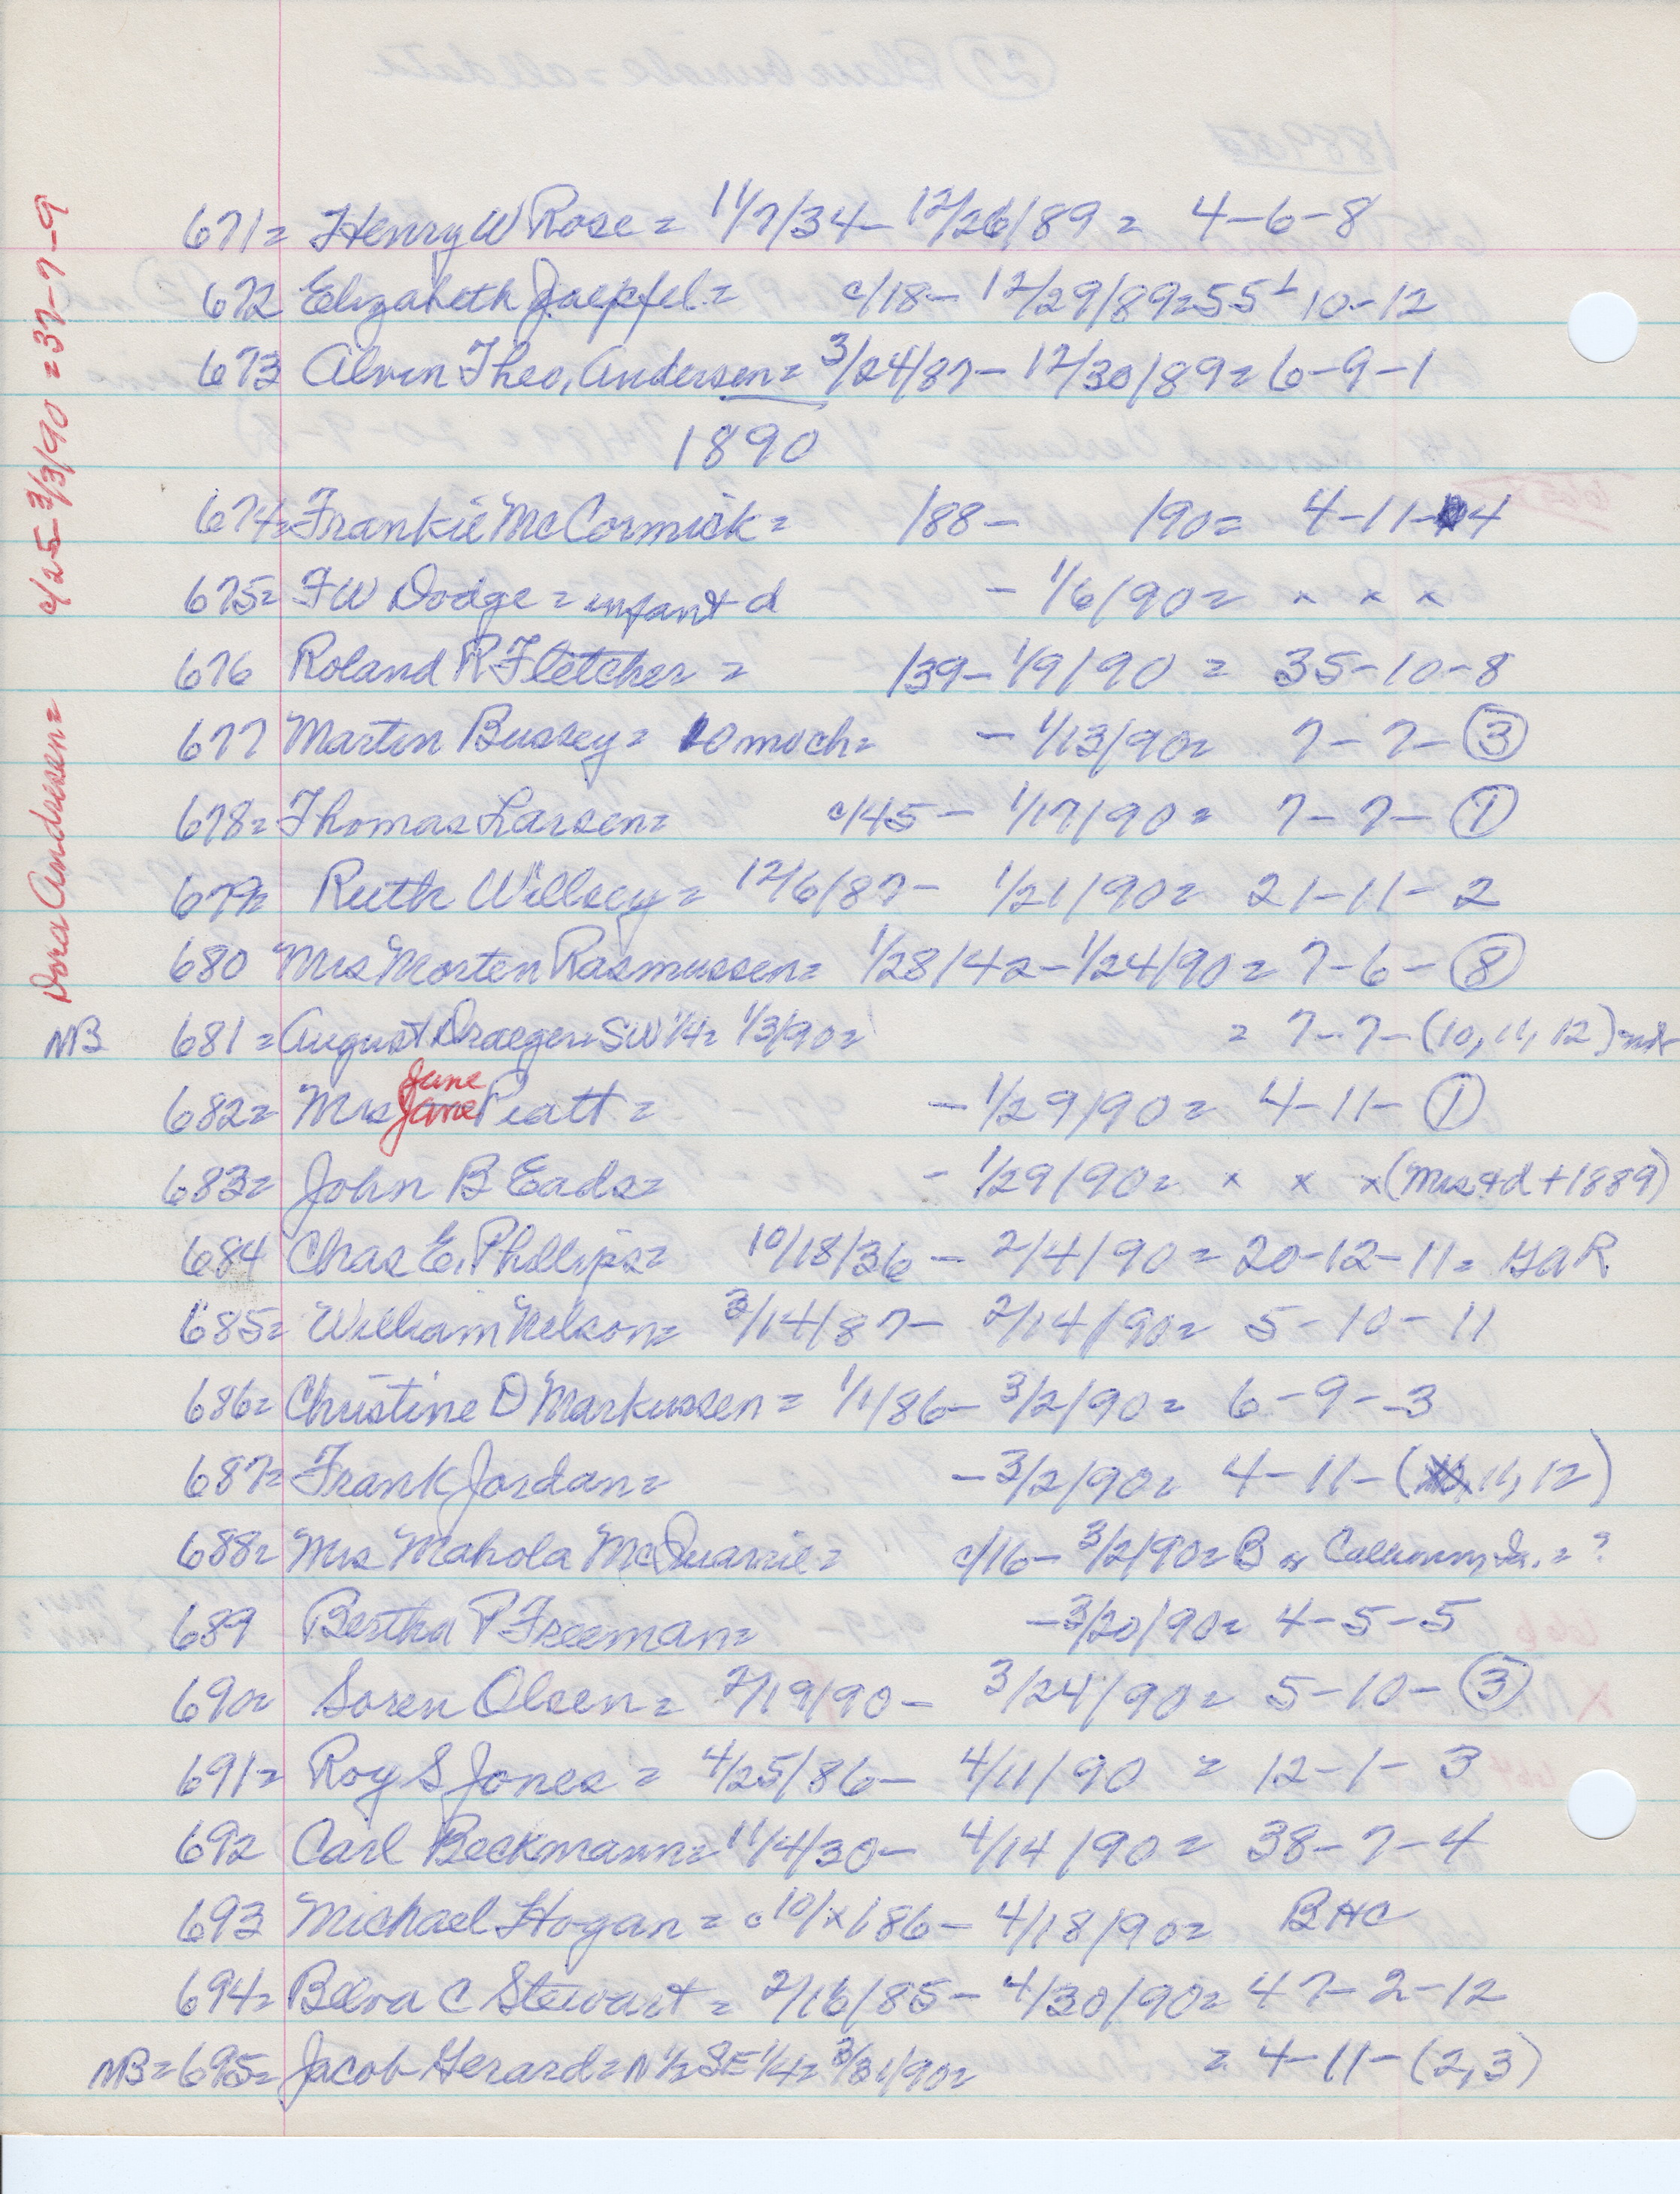 671= Henry W Rose = 11/7/34 - 12/26/89 = 4-6-8
672 Elizabeth Jaepfel = c/18 - 12/29/89 = 55 10-12
673 Alvin Theo, Andersen = 3/24/87 - 12/30/89 = 6-9-1
1890
674= Frankie McCormick = /88 - /90 = 4-11-4
675= F W Dodge = infant d - 1/6/90 = x x x
676 Roland R Fletcher = /39 - 1/9/90 = 35-10-8
677 Martin Bussey = 10 mo ch = - 1/13/90 = 7-7-(3)
678= Thomas Larsen = c/45 - 1/17/90 = 7-7-(1)
679= Ruth Willsey = 12/6/87 - 1/21/90 = 21-11-2
680 Mrs Morten Rasmussen = 1/28/42 - 1/24/90 = 7-6-(8)
NB 681 = August Draeger = SW 1/4 = 1/3/90 = = 7-7-(10, 11, 12)
June
682= Mrs Jane Piatt = - 1/29/90 = 4-11-(1)
683= John B Eads = - 1/29/90 = x x x (Mrs + d + 1889)
684 Chas E. Phillips = 10/18/36 - 2/4/90 = 20-12-11 = GAR
685= William Nelson = 3/14/87 - 2/14/90 = 5-10-11
686= Christine D Markussen = 1/1/86 - 3/2/90 = 6-9-3
687= Frank Jordan = - 3/2/90 = 4-11-(11, 12)
688= Mrs Mahola McQuarrie = c/16 - 3/2/90 = B or Calhoun, = ?
689 Bertha P Freeman = - 3/20/90 = 4-5-5
690= Soren Olsen = 2/19/90 - 3/24/90 = 5-10-(3)
691= Roy S Jones = 4/25/86 - 4/11/90 = 12-1-3
692 Carl Beckmann = 11/4/30 - 4/14/90 = 38-7-4
693 Michael Hogan = c 10/x/86 - 4/18/90 = BHC
694= Belva C Stewart = 2/16/85 - 4/30/90 = 47-2-12
NB = 695= Jacob Gerard = N 1/2 SE 1/4 = 3/31/90 = = 4-11-(2,3)
Dora Andresen = c/25 - 3/3/90 = 37-7-9